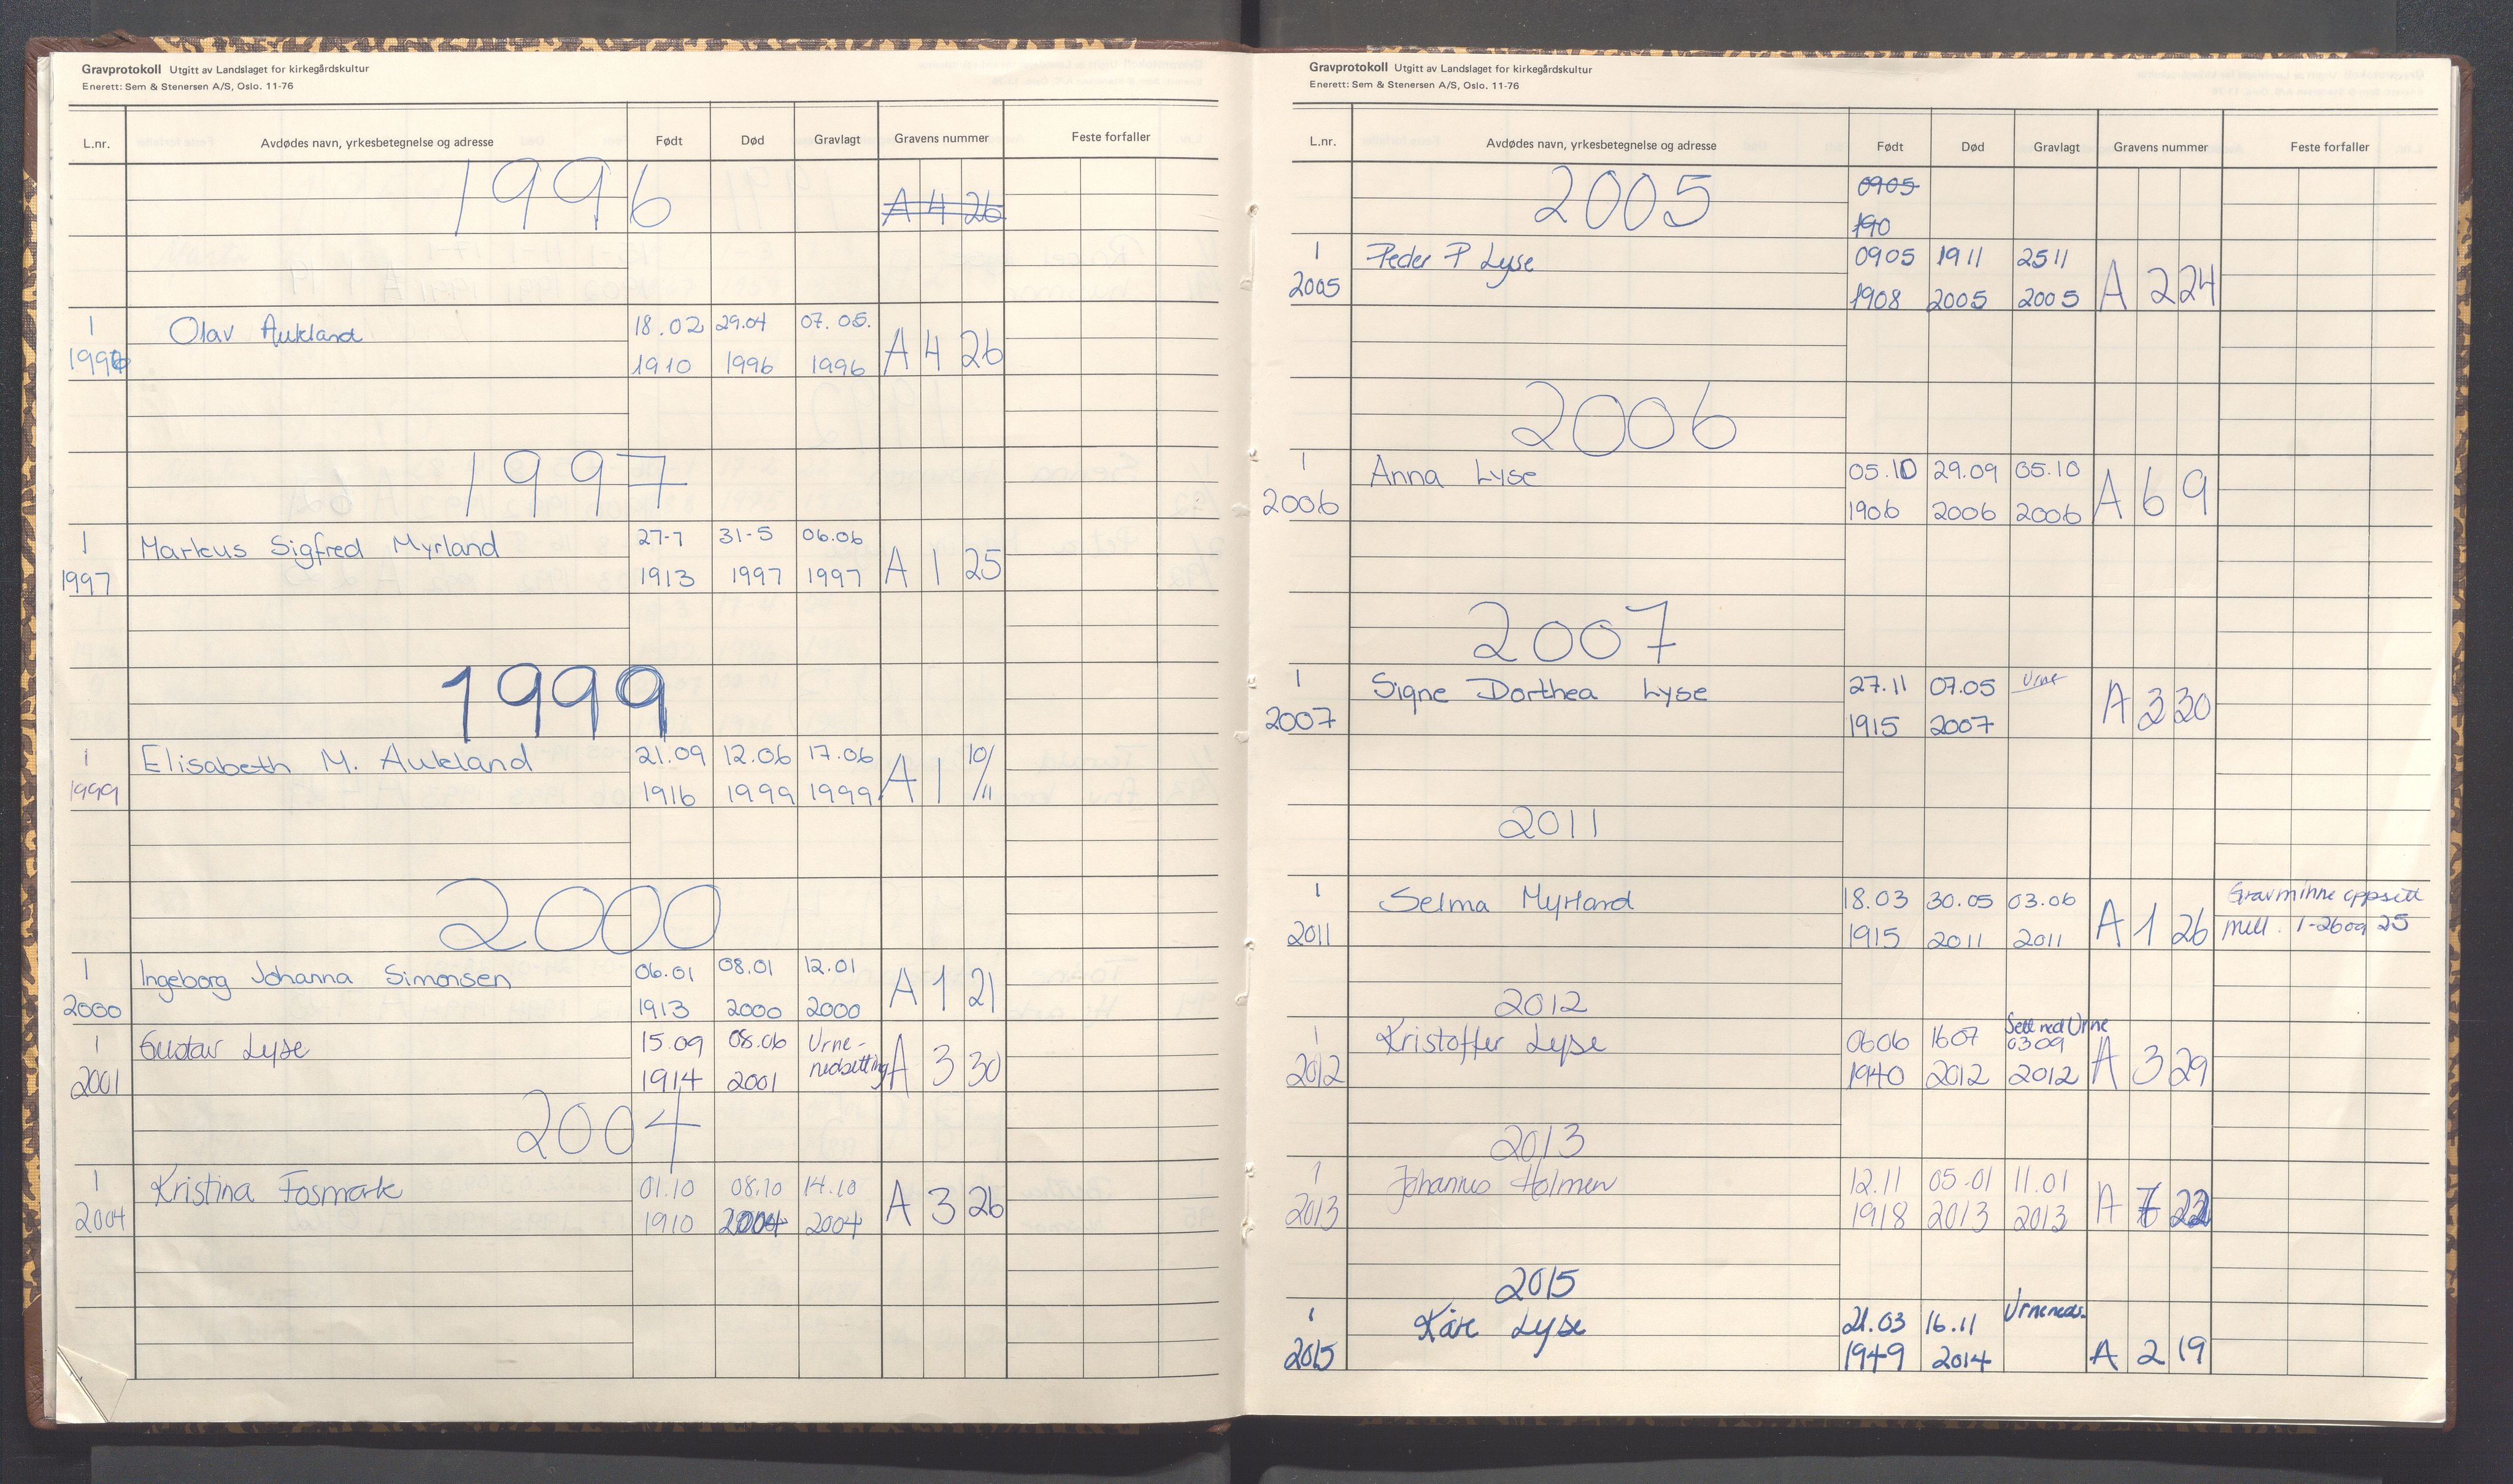 Gravprotokoll Utgitt av Landslaget for kirkegårdskultur
Enerett: Sem & Stenersen A/S, Oslo. 11-76
L.nr. Avdødes navn, yrkesbetegnelse og adresse Født Død Gravlagt Gravens nummer Feste forfaller
1996 A 4 26
1 Olav Aukland 18.02 29.04 07.05. A 4 26
1996 1910 1996 1996
1997
1 Markus Sigfred Myrland 27-7 31-5 06.06 A 1 25
1997 1913 1997 1997
1999
1 Elisabeth M. Aukland 21.09 12.06 17.06 A 1 10/11
1999 1916 1999 1999
2000
1 Ingeborg Johanna Simonsen 06.01 08.01 12.01 A 1 21
2000 1913 2000 2000
1 Gustav Lyse 15.09 08.06 Urne-
2001 1914 2001 nedsetting A 3 30
2004
1 Kristina Fosmark 01.10 08.10 14.10 A 3 26
2004 1910 2004 2004
Gravprotokoll Utgitt av Landslaget for kirkegårdskultur
Enerett: Sem & Stenersen A/S, Oslo. 11-76
L.nr. Avdødes navn, yrkesbetegnelse og adresse Født Død Gravlagt Gravens nummer Feste forfaller
2005 0905
190
1 Peder P Lyse 0905 1911 2511 A 2 24
2005 1908 2005 2005
2006
1 Anna Lyse 05.10 29.09 05.10 A 6 9
2006 1906 2006 2006
2007
1 Signe Dorthea Lyse 27.11 07.05 Urne A 3 30
2007 1915 2007
2011
1 Selma Myrland 18.03 30.05 03.06 A 1 26 Gravminne oppsett
2011 1915 2011 2011 mell. 1-26 og 25
2012
1 Kristoffer Lyse 0606 1607 Sett ned Urne 0309 A 3 29
2012 1940 2012 2012
2013
1 Johannes Holmen 12.11 05.01 11.01 A 22
2013 1918 2013 2013
2015
1 Kåre Lyse 21.03 16.11 Urneneds.
2015 1949 2014 A 2 19